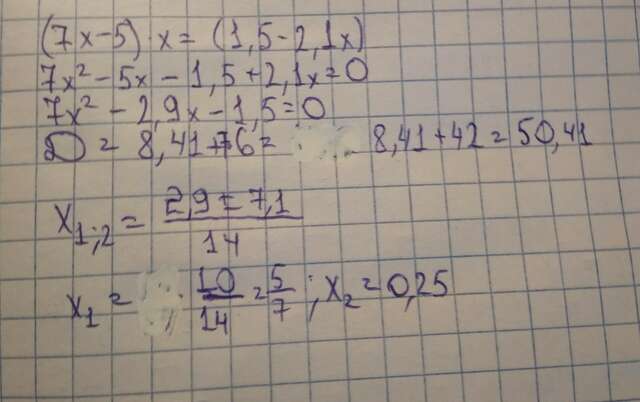 (7x-5) · x = (1,5-2,1x)
7x² - 5x - 1,5 + 2,1x = 0
7x² - 2,9x - 1,5 = 0
D = 8,41 + 76 = 8,41 + 42 = 50,41
x₁;₂ = (2,9 ± 7,1)/14
x₁ = 10/14 = 5/7 ; x₂ = 0,25